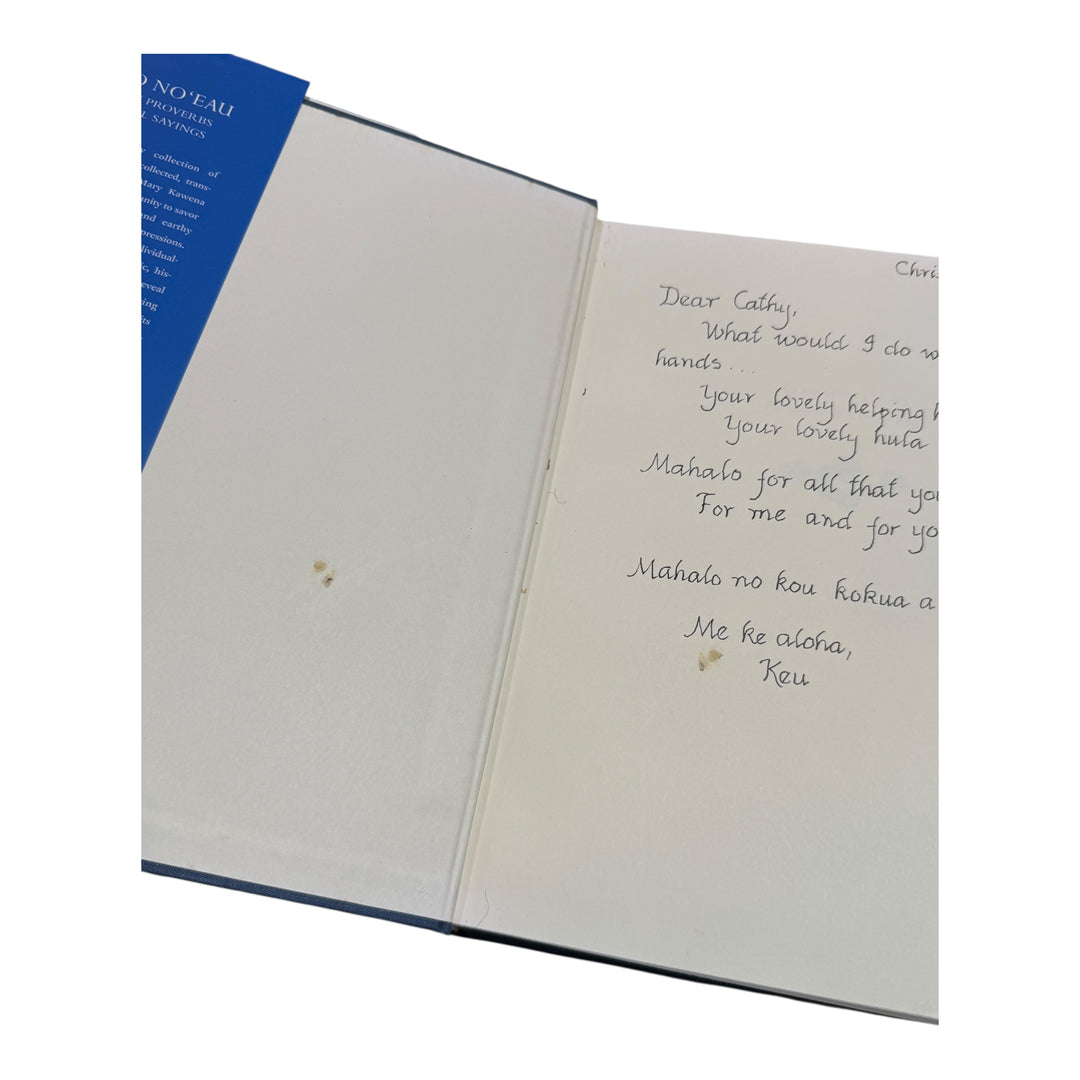 NO‘EAU
PROVERBS
SAYINGS
collection of
collected, trans-
Mary Kawena
to savor
and earthy
his-
Dear Cathy,
What would I do
hands...
Your lovely helping
Your lovely hula
Mahalo for all that
For me and for
Mahalo no kou kokua a
Me ke aloha,
Keu